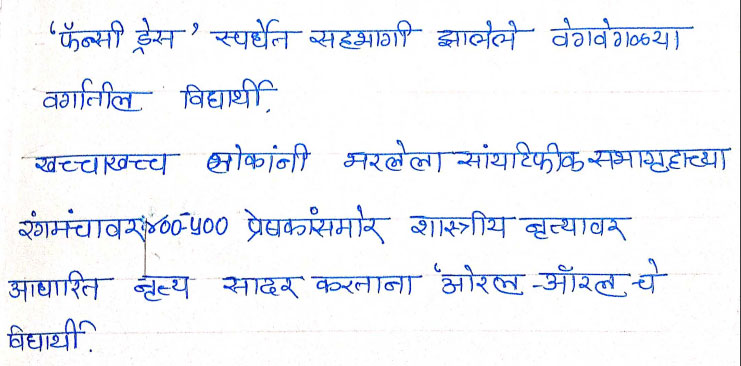 ‘फॅन्सी ड्रेस’ स्पर्धेत सहभागी झालेले वेगवेगळ्या
वर्गातील विद्यार्थी.
खच्चाखच्च लोकांनी भरलेला सांयटिफीक सभागृहाच्या
रंगमंचावर ४००-५०० प्रेक्षकांसमोर शास्त्रीय नृत्यावर
आधारित नृत्य सादर करताना ‘ओरल-ऑरल’चे
विद्यार्थी.